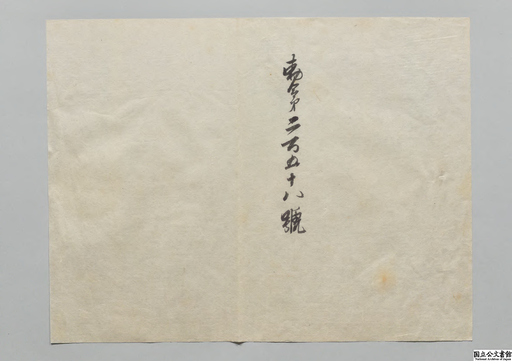 勅令第二百五十八號
国立公文書館
National Archives of Japan